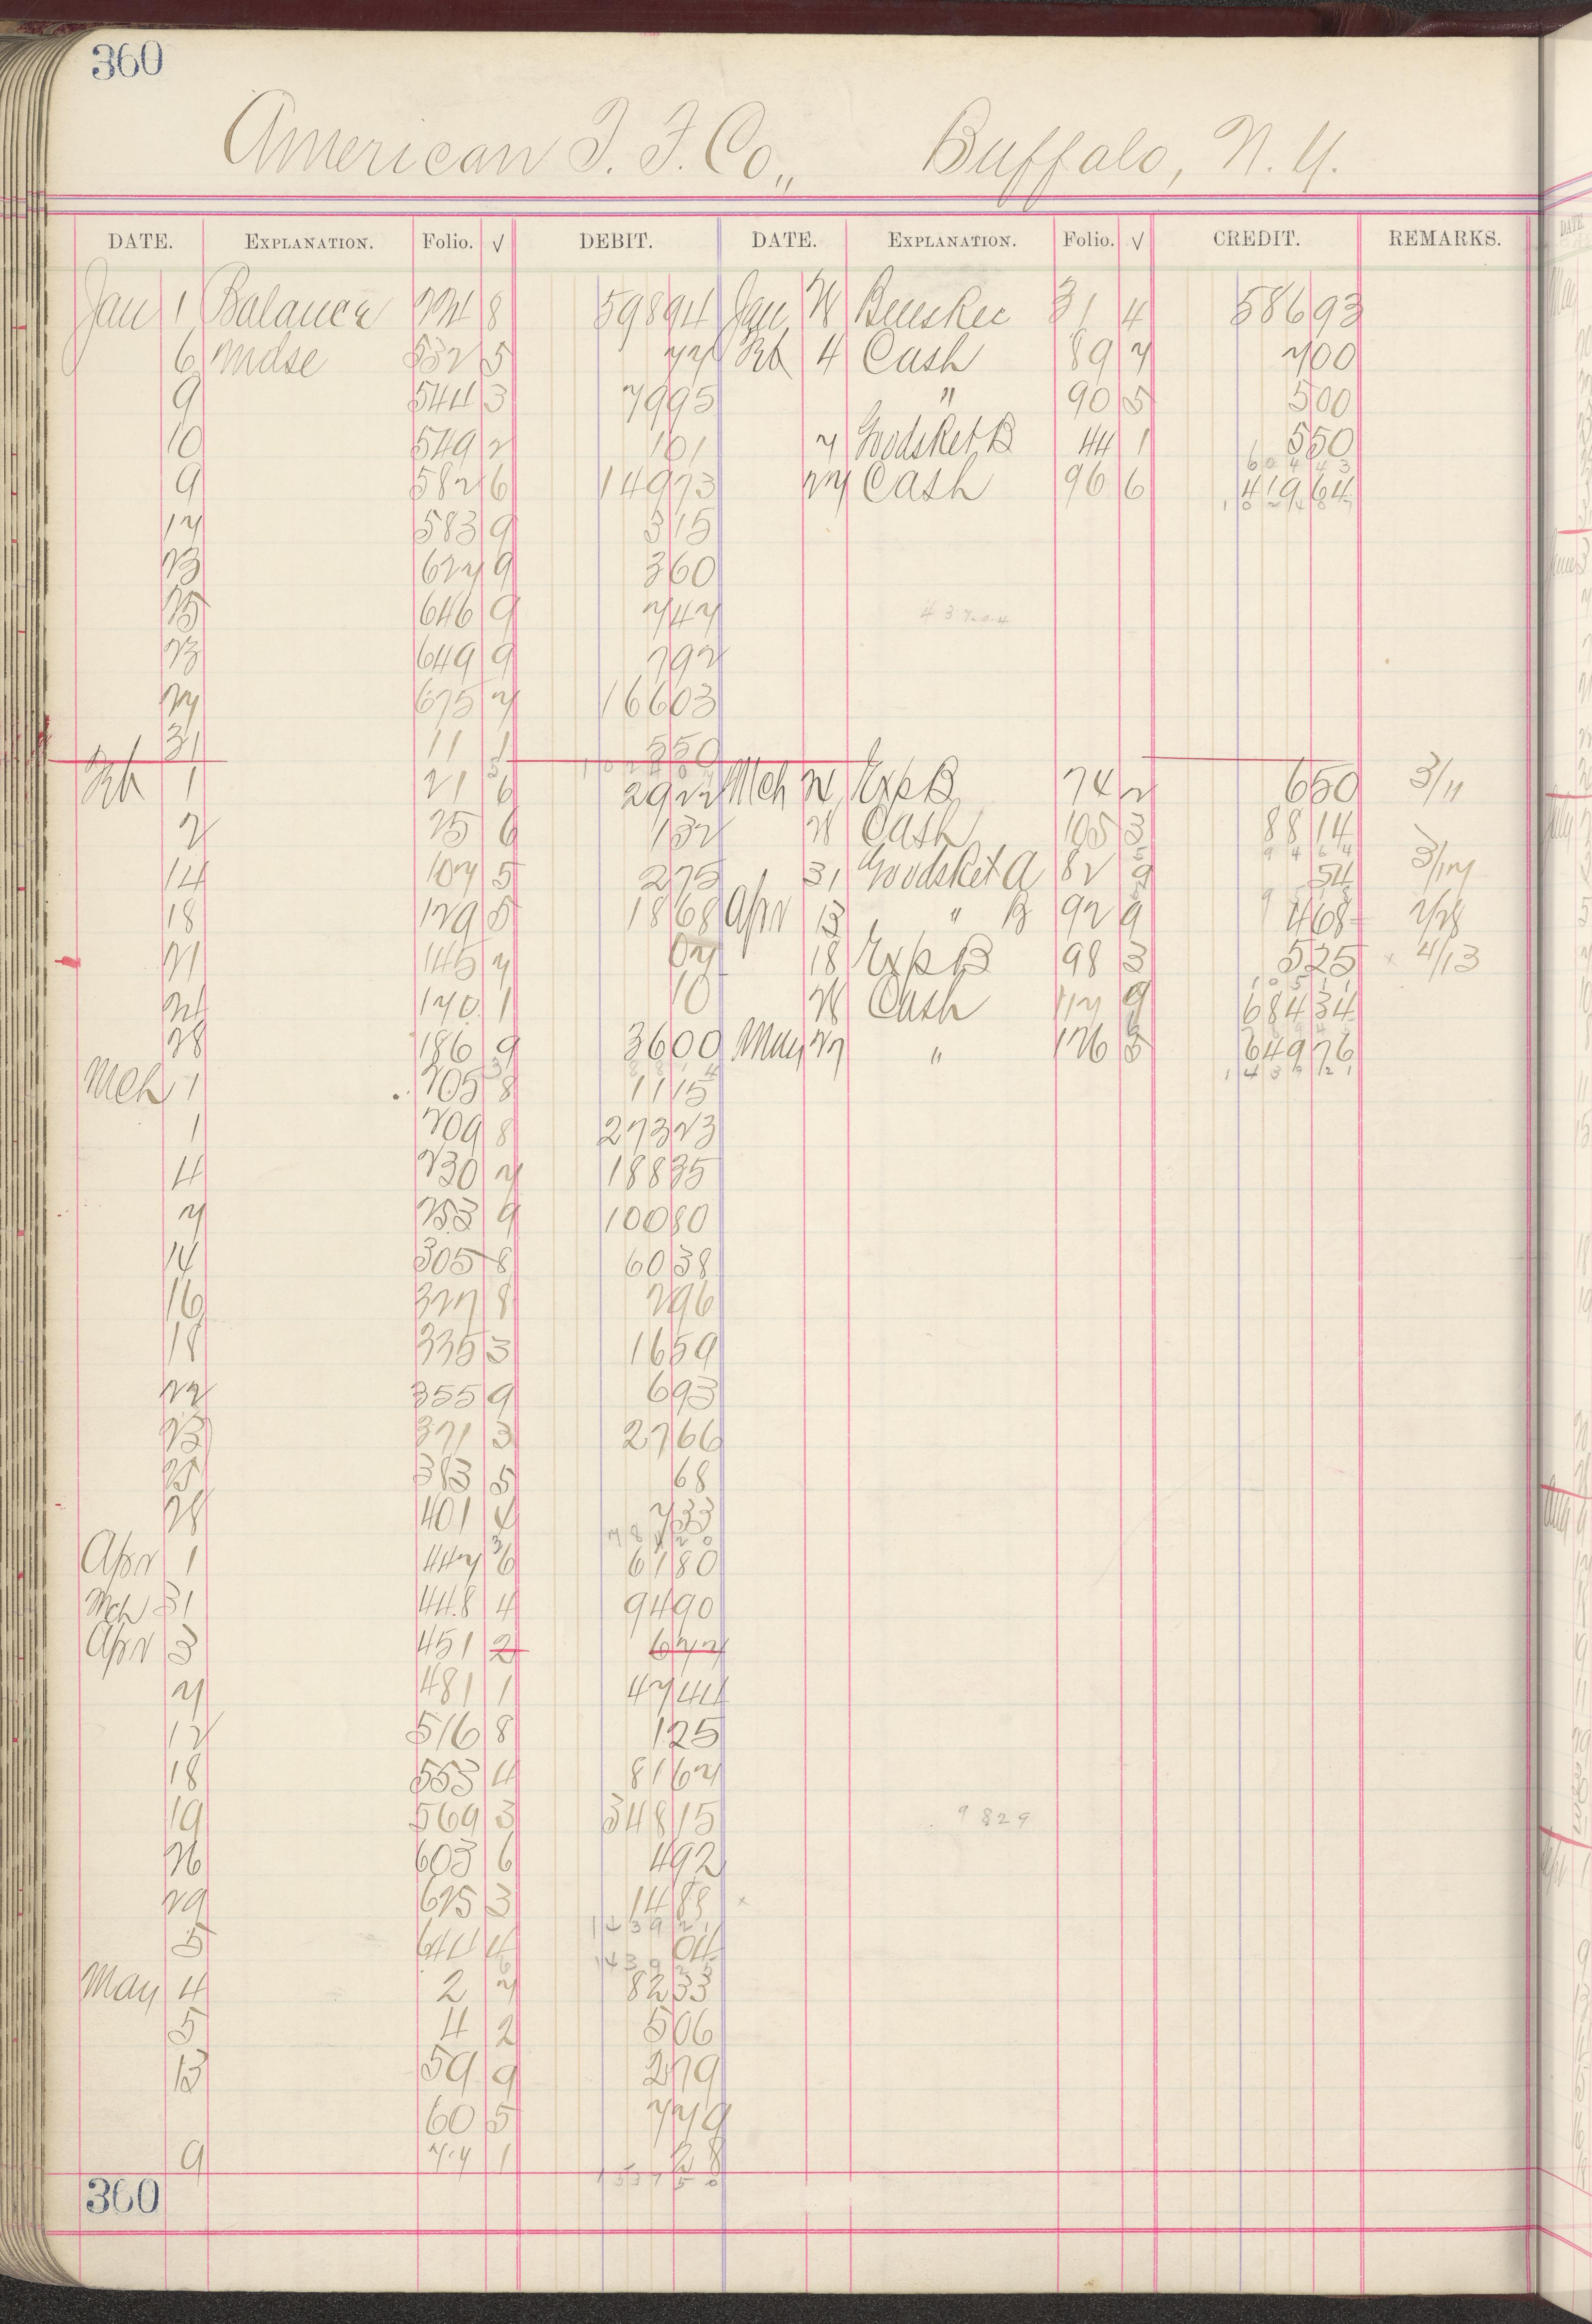 360
American I. F. Co., Buffalo, N. Y.
DATE. EXPLANATION. Folio. √ DEBIT. DATE. EXPLANATION. Folio. √ CREDIT. REMARKS.
Jan 1 Balance 598 94 Jan 586 93
6 Mdse 532 5 Feb 4 Cash 89 7 7 00
9 544 3 79 95 " 90 5 5 00
10 549 2 1 01 7 44 1 5 50
9 582 6 149 73 27 Cash 96 6 419 64
17 583 9 5 15
23 627 9 3 60
25 646 9 7 47
23 649 9 7 92
27 675 7 166 03
31 11 1 5 50
Feb 1 21 6 29 22 Mch 22 Exp B 74 2 6 50 3/11
7 75 6 1 32 28 Cash 105 3 88 14
14 107 5 2 75 31 Wodsket A 82 9 54 3/17
18 129 5 18 68 Apr 13 " B 92 9 4 68
21 145 7 67 18 Exp B 98 3 5 25 4/13
24 170 1 10 28 Cash 117 9 684 34
28 186 9 36 00 May 27 " 126 3 649 76
Mch 1 205 8 11 15
1 209 8 273 23
4 230 7 188 35
7 253 9 100 80
14 305 8 60 38
16 327 8 2 96
18 335 3 16 59
22 355 9 6 93
23 371 3 27 66
25 383 5 68
28 401 4 7 33
Apr 1 447 6 61 80
Mch 31 448 4 94 90
Apr 3 451 2 6 77
7 481 1 47 44
12 516 8 1 25
18 553 4 81 67
19 569 3 348 15 9 829
26 603 6 4 92
29 625 3 14 88
5 644 4 04
May 4 2 7 82 33
5 4 2 5 06
13 59 9 2 79
60 5 7 79
9 77 1
360